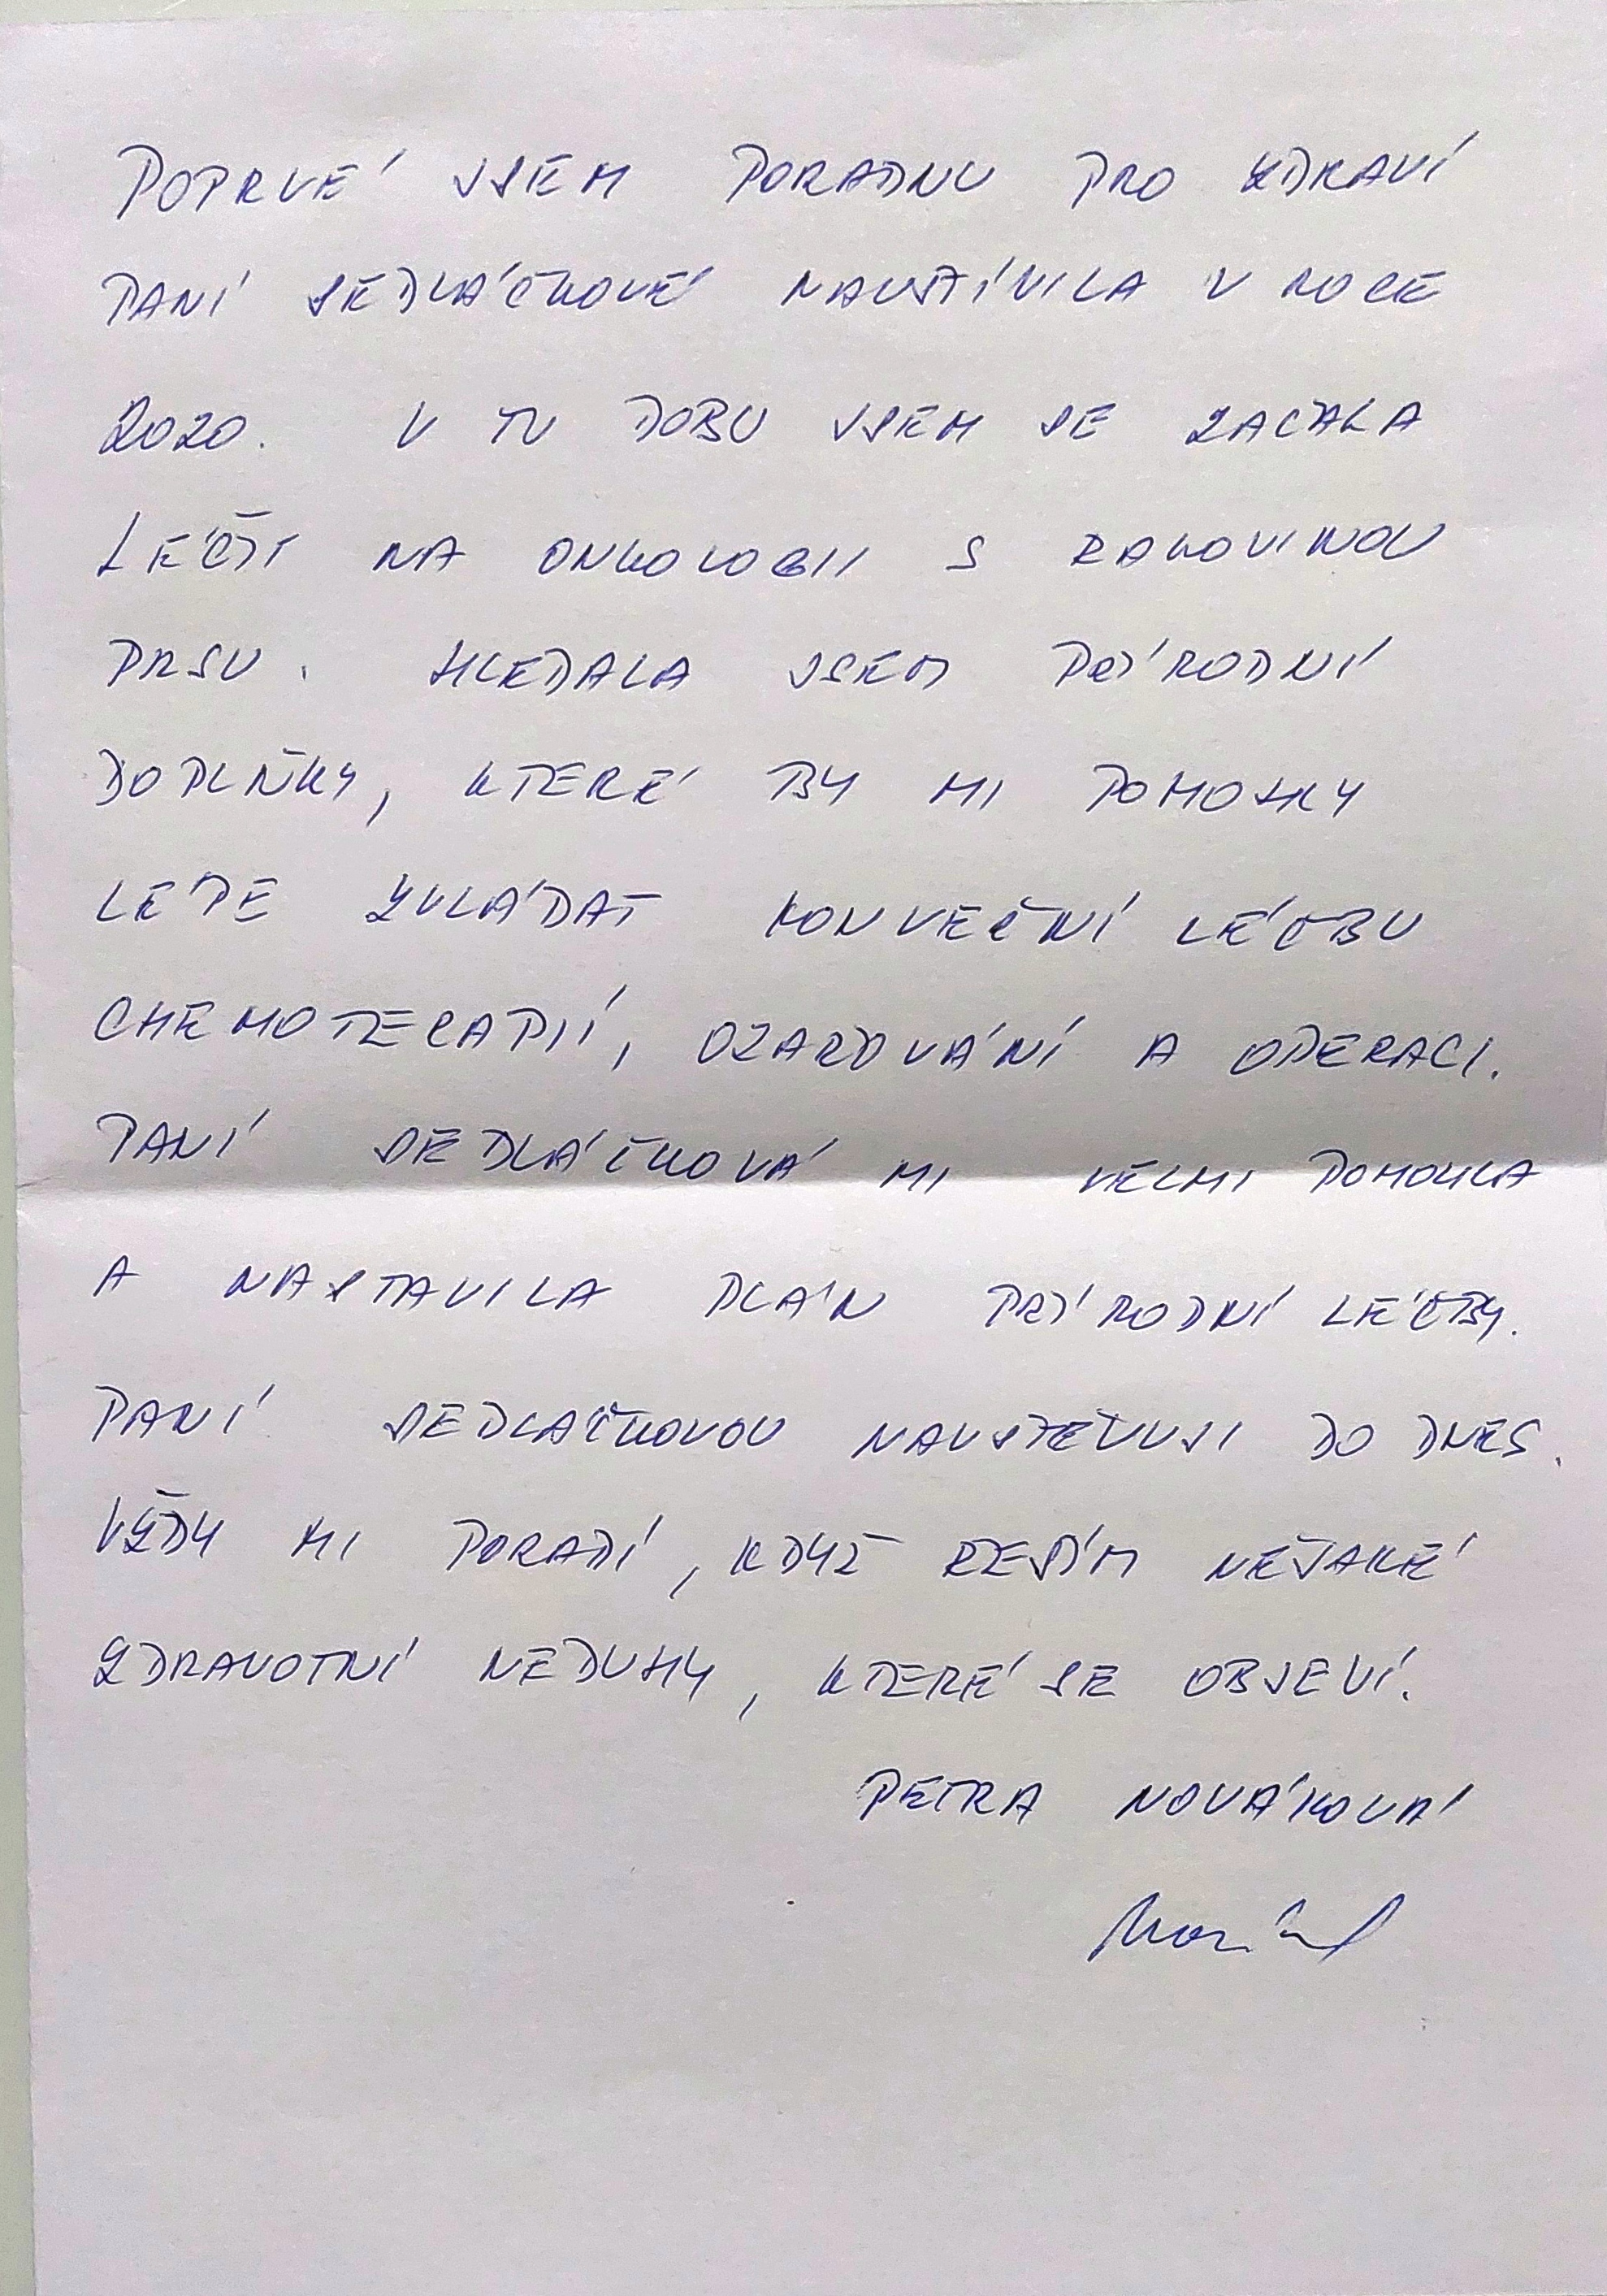 POPRVÉ JSEM PORADNU PRO ZDRAVÍ
PANÍ SEDLÁČKOVÉ NAVŠTÍVILA V ROCE
2020. V TU DOBU JSEM SE ZAČALA
LÉČIT NA ONKOLOGII S RAKOVINOU
PRSU. HLEDALA JSEM PŘÍRODNÍ
DOPLŇKY, KTERÉ BY MI POMOHLY
LÉPE ZVLÁDAT KONVEČNÍ LÉČBU
CHEMOTERAPIÍ, OZAŘOVÁNÍ A OPERACI.
PANÍ SEDLÁČKOVÁ MI VELMI POMOHLA
A NASTAVILA PLÁN PŘÍRODNÍ LÉČBY.
PANÍ SEDLÁČKOVOU NAVŠTĚVUJI DO DNES.
VŽDY MI PORADÍ, KDYŽ ŘEŠÍM NĚJAKÉ
ZDRAVOTNÍ NEDUHY, KTERÉ SE OBJEVÍ.
PETRA NOVÁKOVÁ